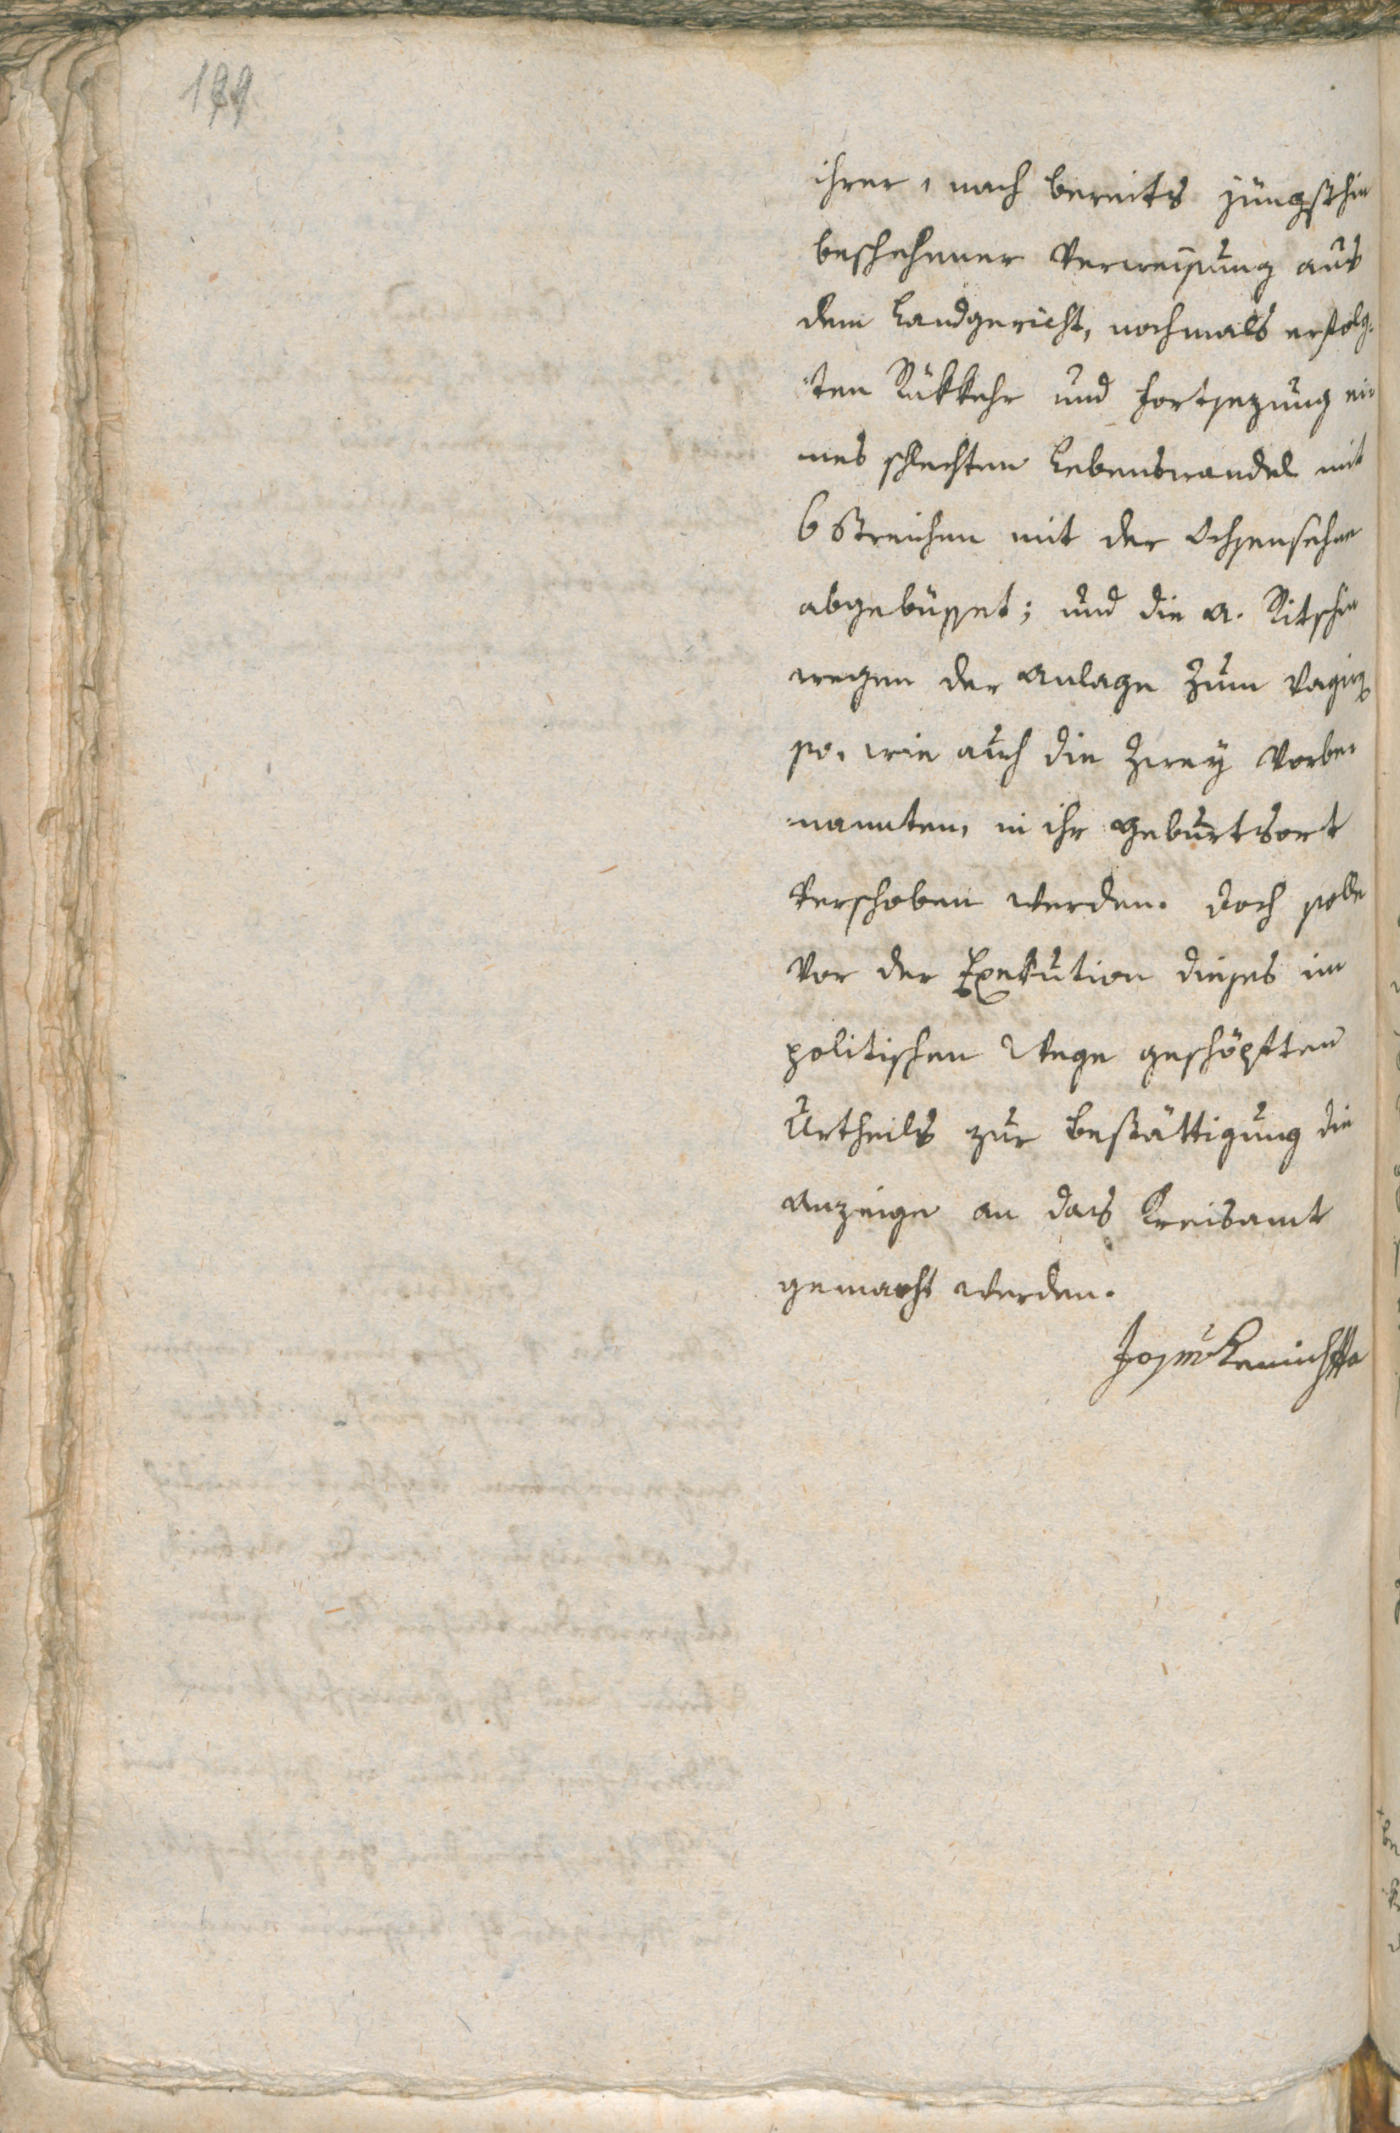 ihrer, nach bereits jüngsthin
beschehener Verweisung aus
dem Landgericht, nochmals erfolg-
ten Rükkehr und Fortsezung ei-
nes schlechten Lebenswandel mit
6 Streichen mit der Ochsensehne
abgebüsset; und die A. Ritschin
wegen der Anlage zum
so, wie auch die zwey Vorbe-
nannten, in ihr Geburtsort
verschoben werden. Doch solle
vor der Exekution dieses im
politischen Wege geschöpften
Urtheils zur Bestättigung die
Anzeige an das Kreisamt
gemacht werden.